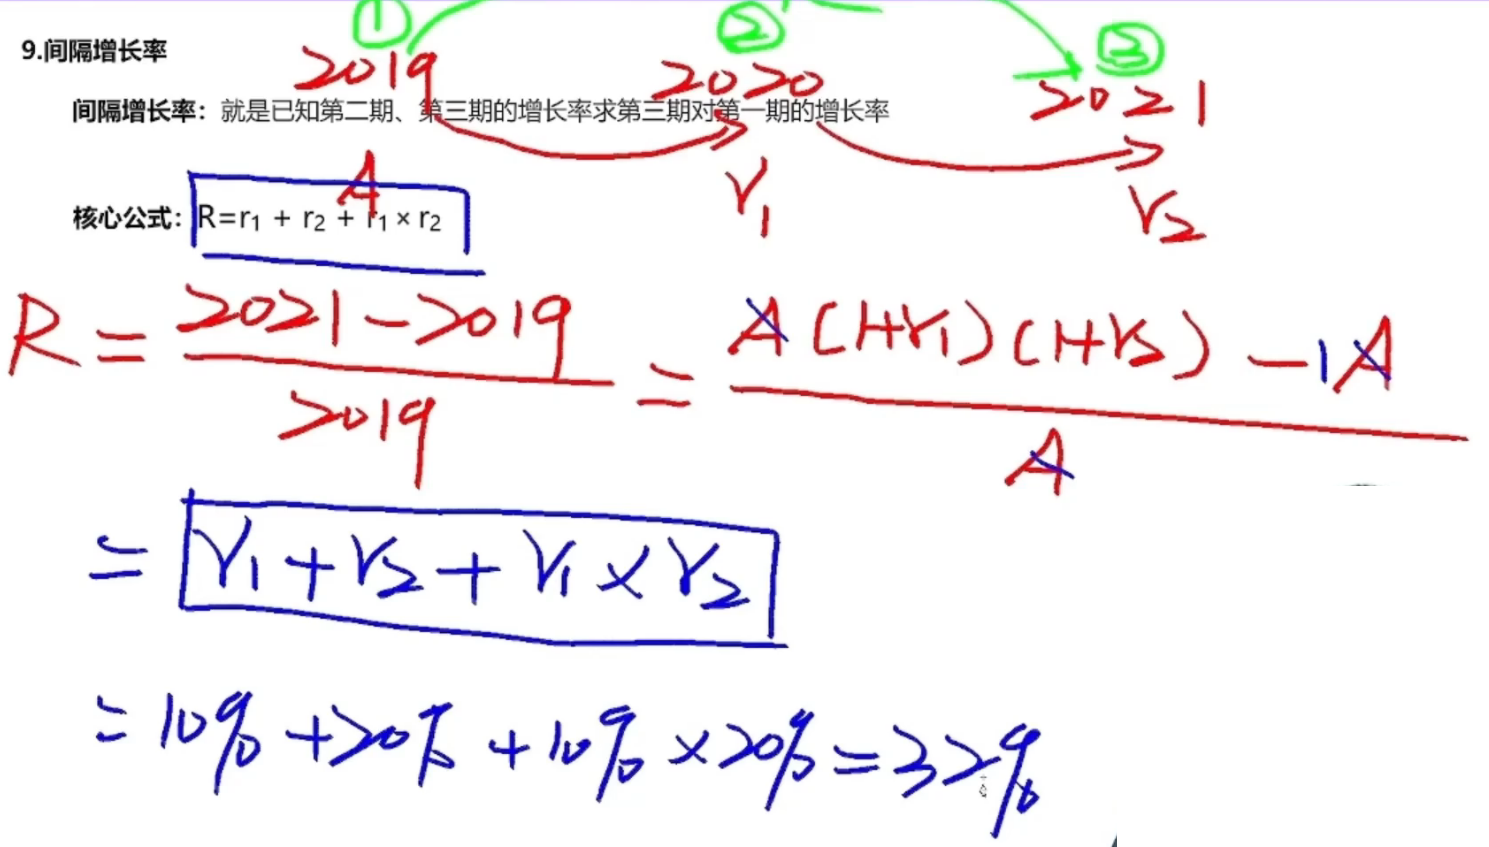 ① ② ③
9.间隔增长率
2019 2020 2021
间隔增长率：就是已知第二期、第三期的增长率求第三期对第一期的增长率
A r₁ r₂
核心公式：R=r₁ + r₂ + r₁ × r₂
R = 2021-2019 = A(1+r₁)(1+r₂)-1A
2019 A
= r₁+r₂+r₁×r₂
= 10%+20%+10%×20%=32%